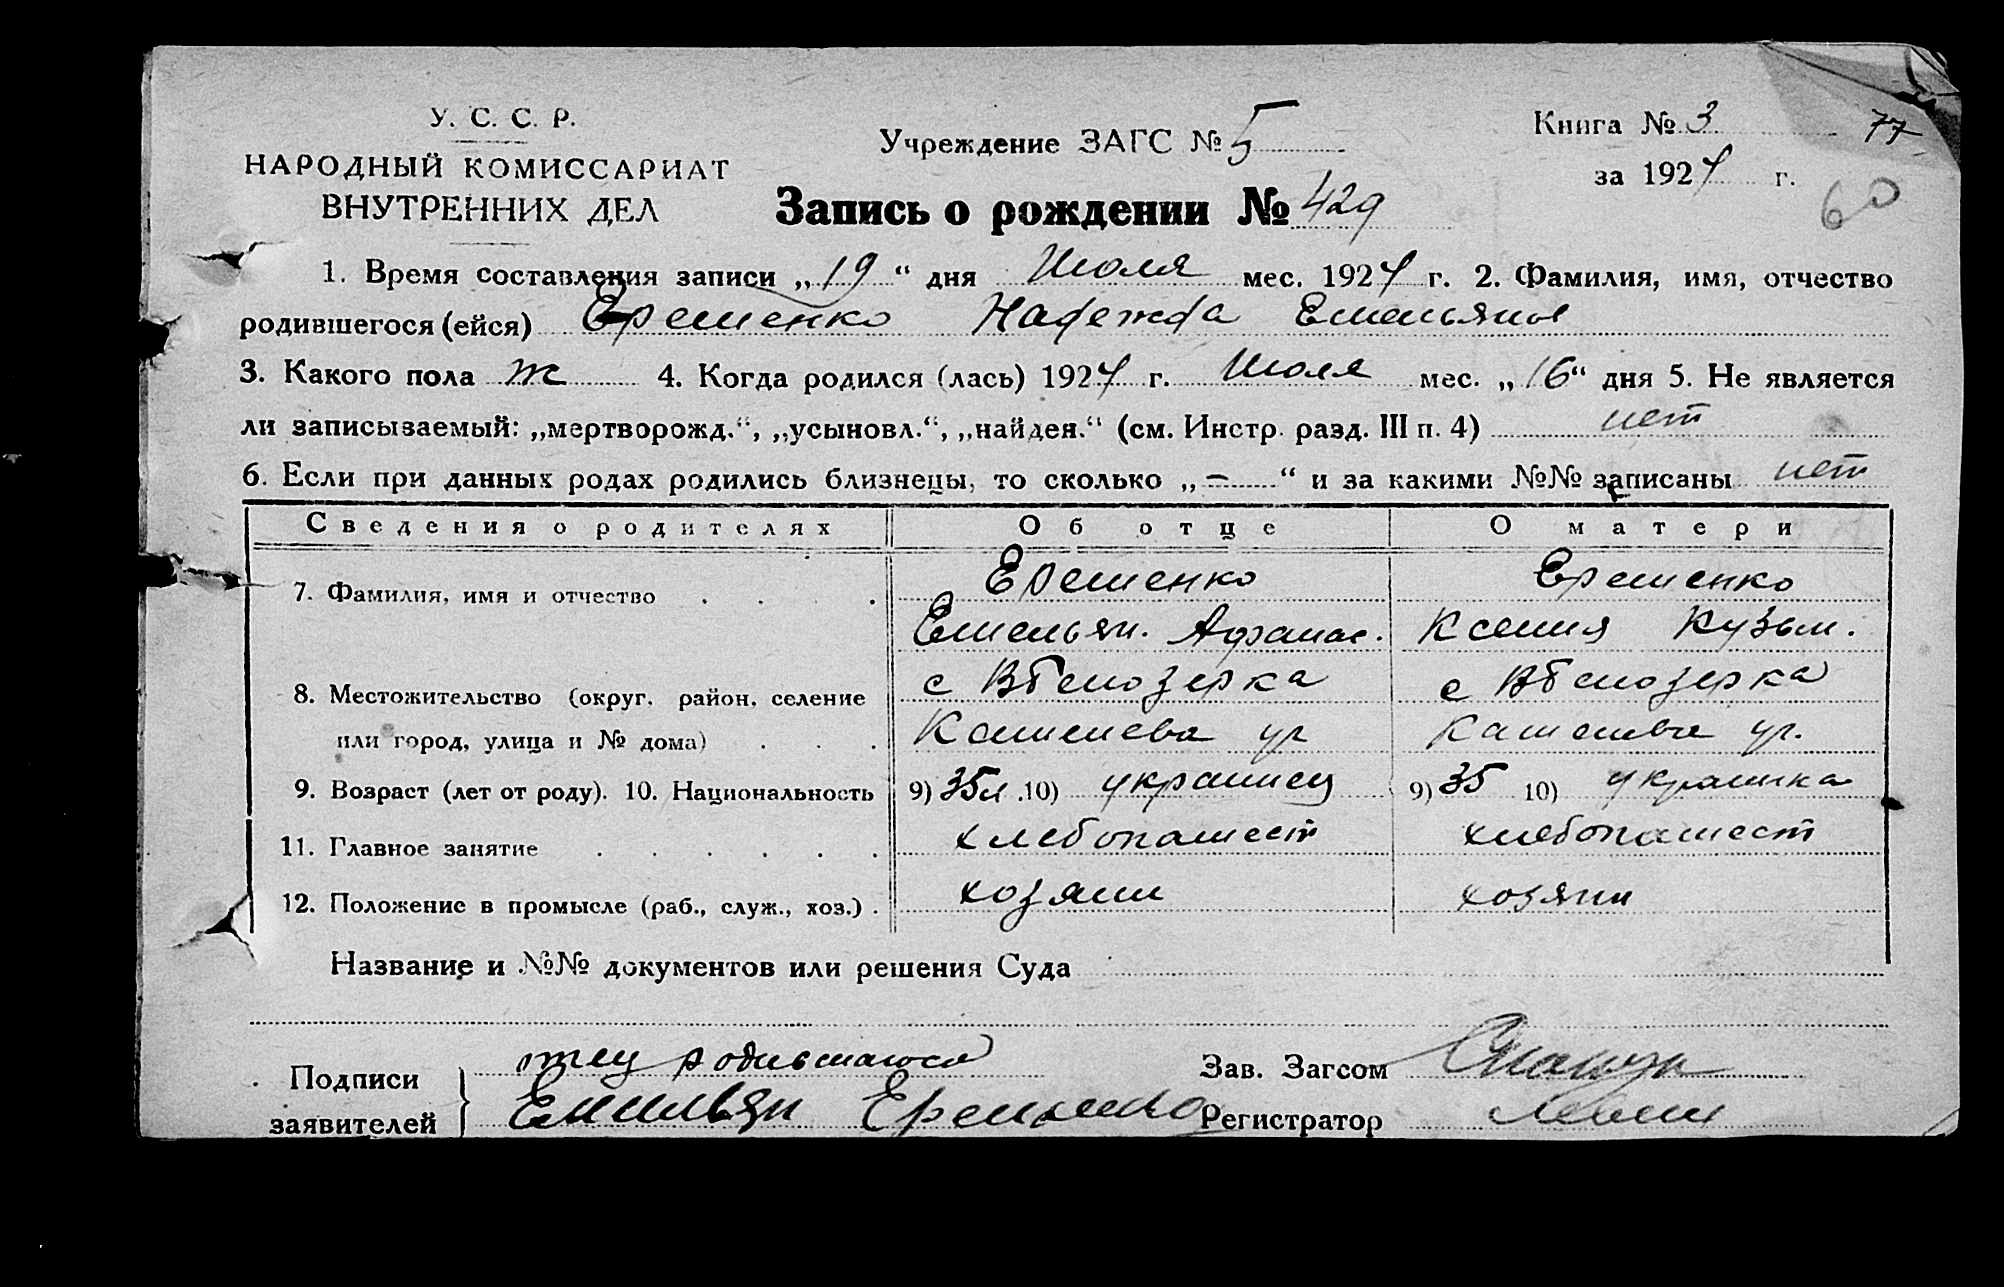 У. С. С. Р.
НАРОДНЫЙ КОМИССАРИАТ
ВНУТРЕННИХ ДЕЛ
Учреждение ЗАГС № 5
Книга № 3
77
за 1924 г.
60
Запись о рождении № 429
1. Время составления записи „19“ дня Июля мес. 1924 г. 2. Фамилия, имя, отчество
родившегося (ейся) Ерешенко Надежда Емельянов
3. Какого пола ж 4. Когда родился (лась) 1924 г. Июля мес. „16“ дня 5. Не является
ли записываемый: „мертворожд.“, „усыновл.“, „найден.“ (см. Инстр. разд. III п. 4) нет
6. Если при данных родах родились близнецы, то сколько „–“ и за какими №№ записаны нет
Сведения о родителях Об отце О матери
7. Фамилия, имя и отчество Ерешенко Ерешенко
Емельян. Афанас. Ксения Кузьм.
8. Местожительство (округ, район, селение с Вбелозерка с Вбелозерка
или город, улица и № дома) ул ул.
9. Возраст (лет от роду). 10. Национальность 9) 35л. 10) украинец 9) 35 10) украинка
11. Главное занятие хлебопашест хлебопашест
12. Положение в промысле (раб., служ., хоз.) хозяин хозяин
Название и №№ документов или решения Суда
Подписи отец родившагося Зав. Загсом
заявителей Емильян Ерешенко Регистратор